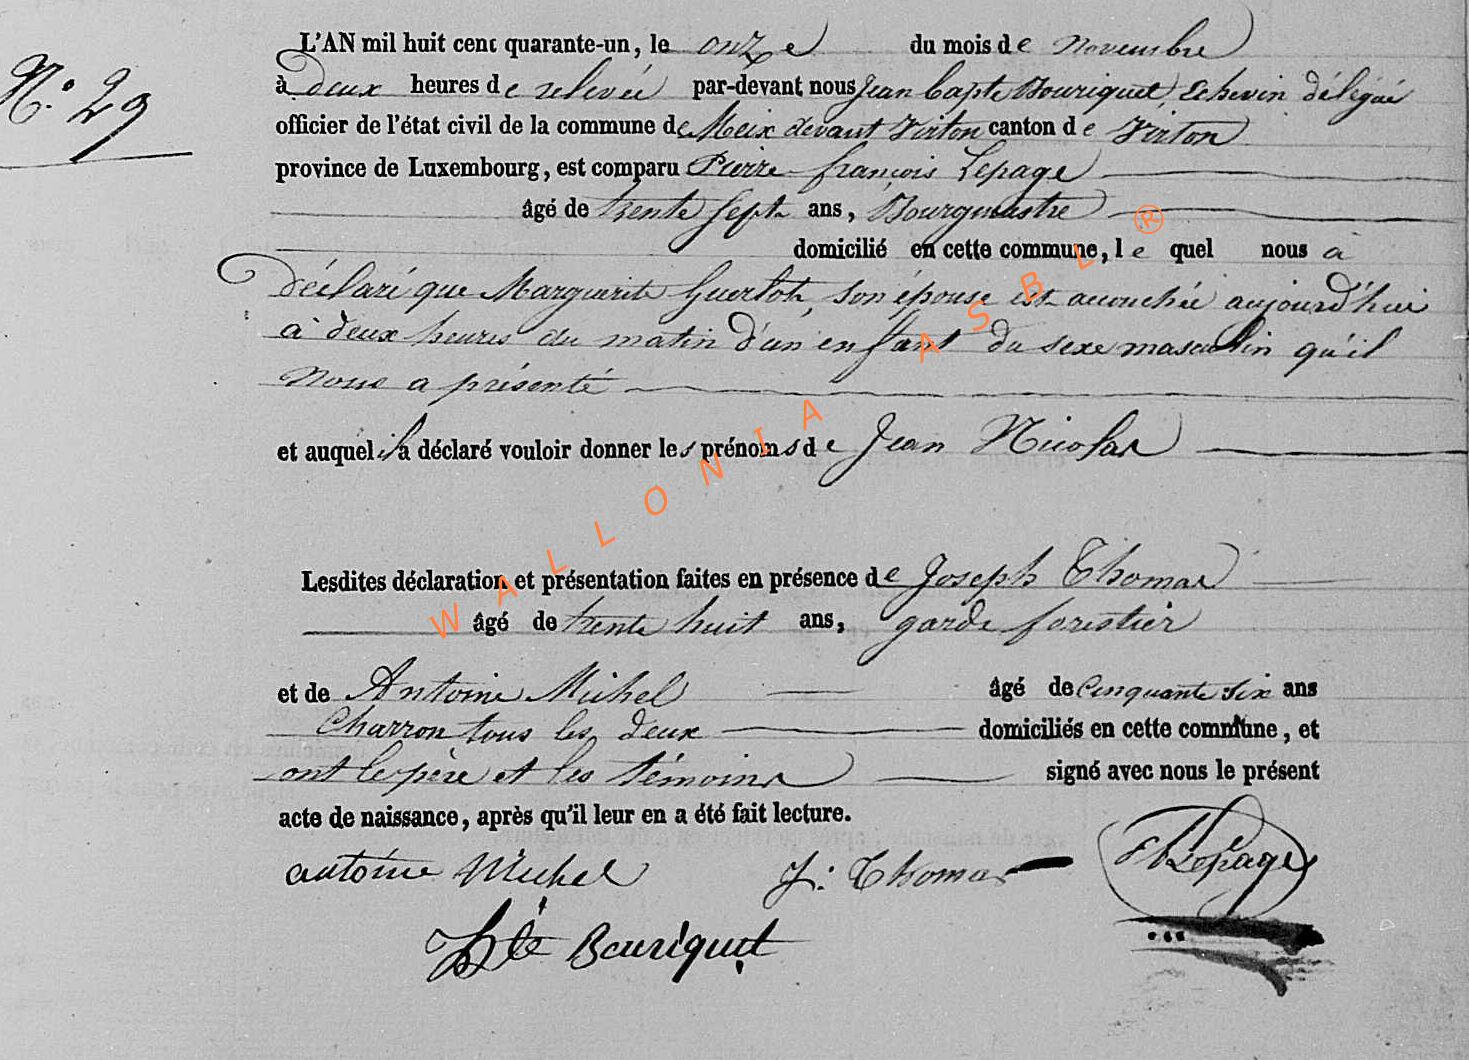 N.° 29
L'AN mil huit cent quarante-un, le onze du mois de Novembre
à Deux heures de relevée par-devant nous Jean Bapte Bouriquet, Echevin délégué
officier de l'état civil de la commune de Meix devant Virton canton de Virton
province de Luxembourg, est comparu Pierre françois Lepage
âgé de trente sept ans, Bourgmestre
domicilié en cette commune, le quel nous à
Déclaré que Marguerite Guerlot, son épouse est accouchée aujourd'hui
à deux heures du matin d'un enfant du sexe masculin qu'il
nous a présenté
et auquel il a déclaré vouloir donner les prénoms de Jean Nicolas
Lesdites déclaration et présentation faites en présence de Joseph Thomas
âgé de trente huit ans, garde forestier
et de Antoine Michel âgé de Cinquante six ans
Charron tous les deux domiciliés en cette commune, et
ont le père et les témoins signé avec nous le présent
acte de naissance, après qu'il leur en a été fait lecture.
antoine Michel J: Thomas Lepage
Bte Bouriquet
WALLONIA ASBL ®